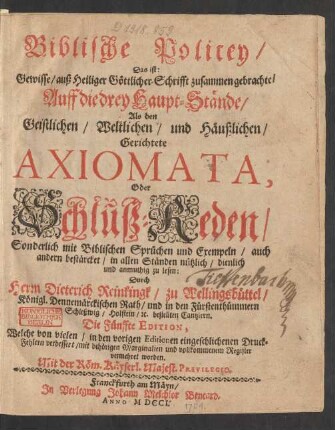 D 1318.859
Biblische Policey /
Das ist:
Gewisse / auß Heiliger Göttlicher Schrifft zusammen gebrachte /
Auff die drey Haupt-Stände /
Als den
Geistlichen / Weltlichen / und Häußlichen /
Gerichtete
AXIOMATA,
Oder
Schlüß-Reden /
Sonderlich mit Biblischen Sprüchen und Exempeln / auch
andern bestärcket / in allen Ständen nützlich / dienlich
und anmuthig zu lesen:
Durch
Herrn Dieterich Reinkingk / zu Wellingsbüttel /
Königl. Dennemärckischen Rath / und in den Fürstenthümmern
Schleßwig / Holstein / ec. bestalten Cantzlern.
Die Fünffte EDITION,
Welche von vielen / in den vorigen Editionen eingeschlichenen Druck-
Fehlern verbessert / mit behörigen Marginalien und vollkommenem Register
vermehret worden.
Mit der Röm. Käyserl. Majest. PRIVILEGIO.
Franckfurth am Mäyn /
In Verlegung Johann Melchior Bencard.
ANNO MDCCI.
1701